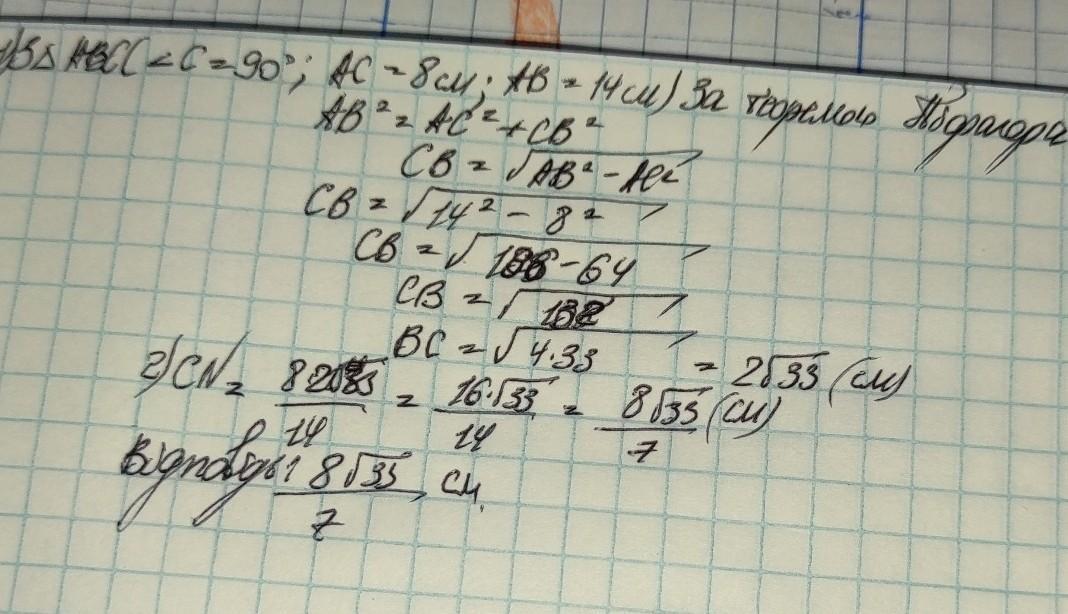 1) В △ ABC (∠C = 90°; AC = 8 см; AB = 14 см) За теоремою Піфагора
AB² = AC² + CB²
CB = √AB² - AC²
CB = √14² - 8²
CB = √196 - 64
CB = √132
BC = √4·33 = 2√33 (см)
2) CN = 8·2√33/14 = 16·√33/14 = 8√33/7 (см)
Відповідь: 8√33/7 см.